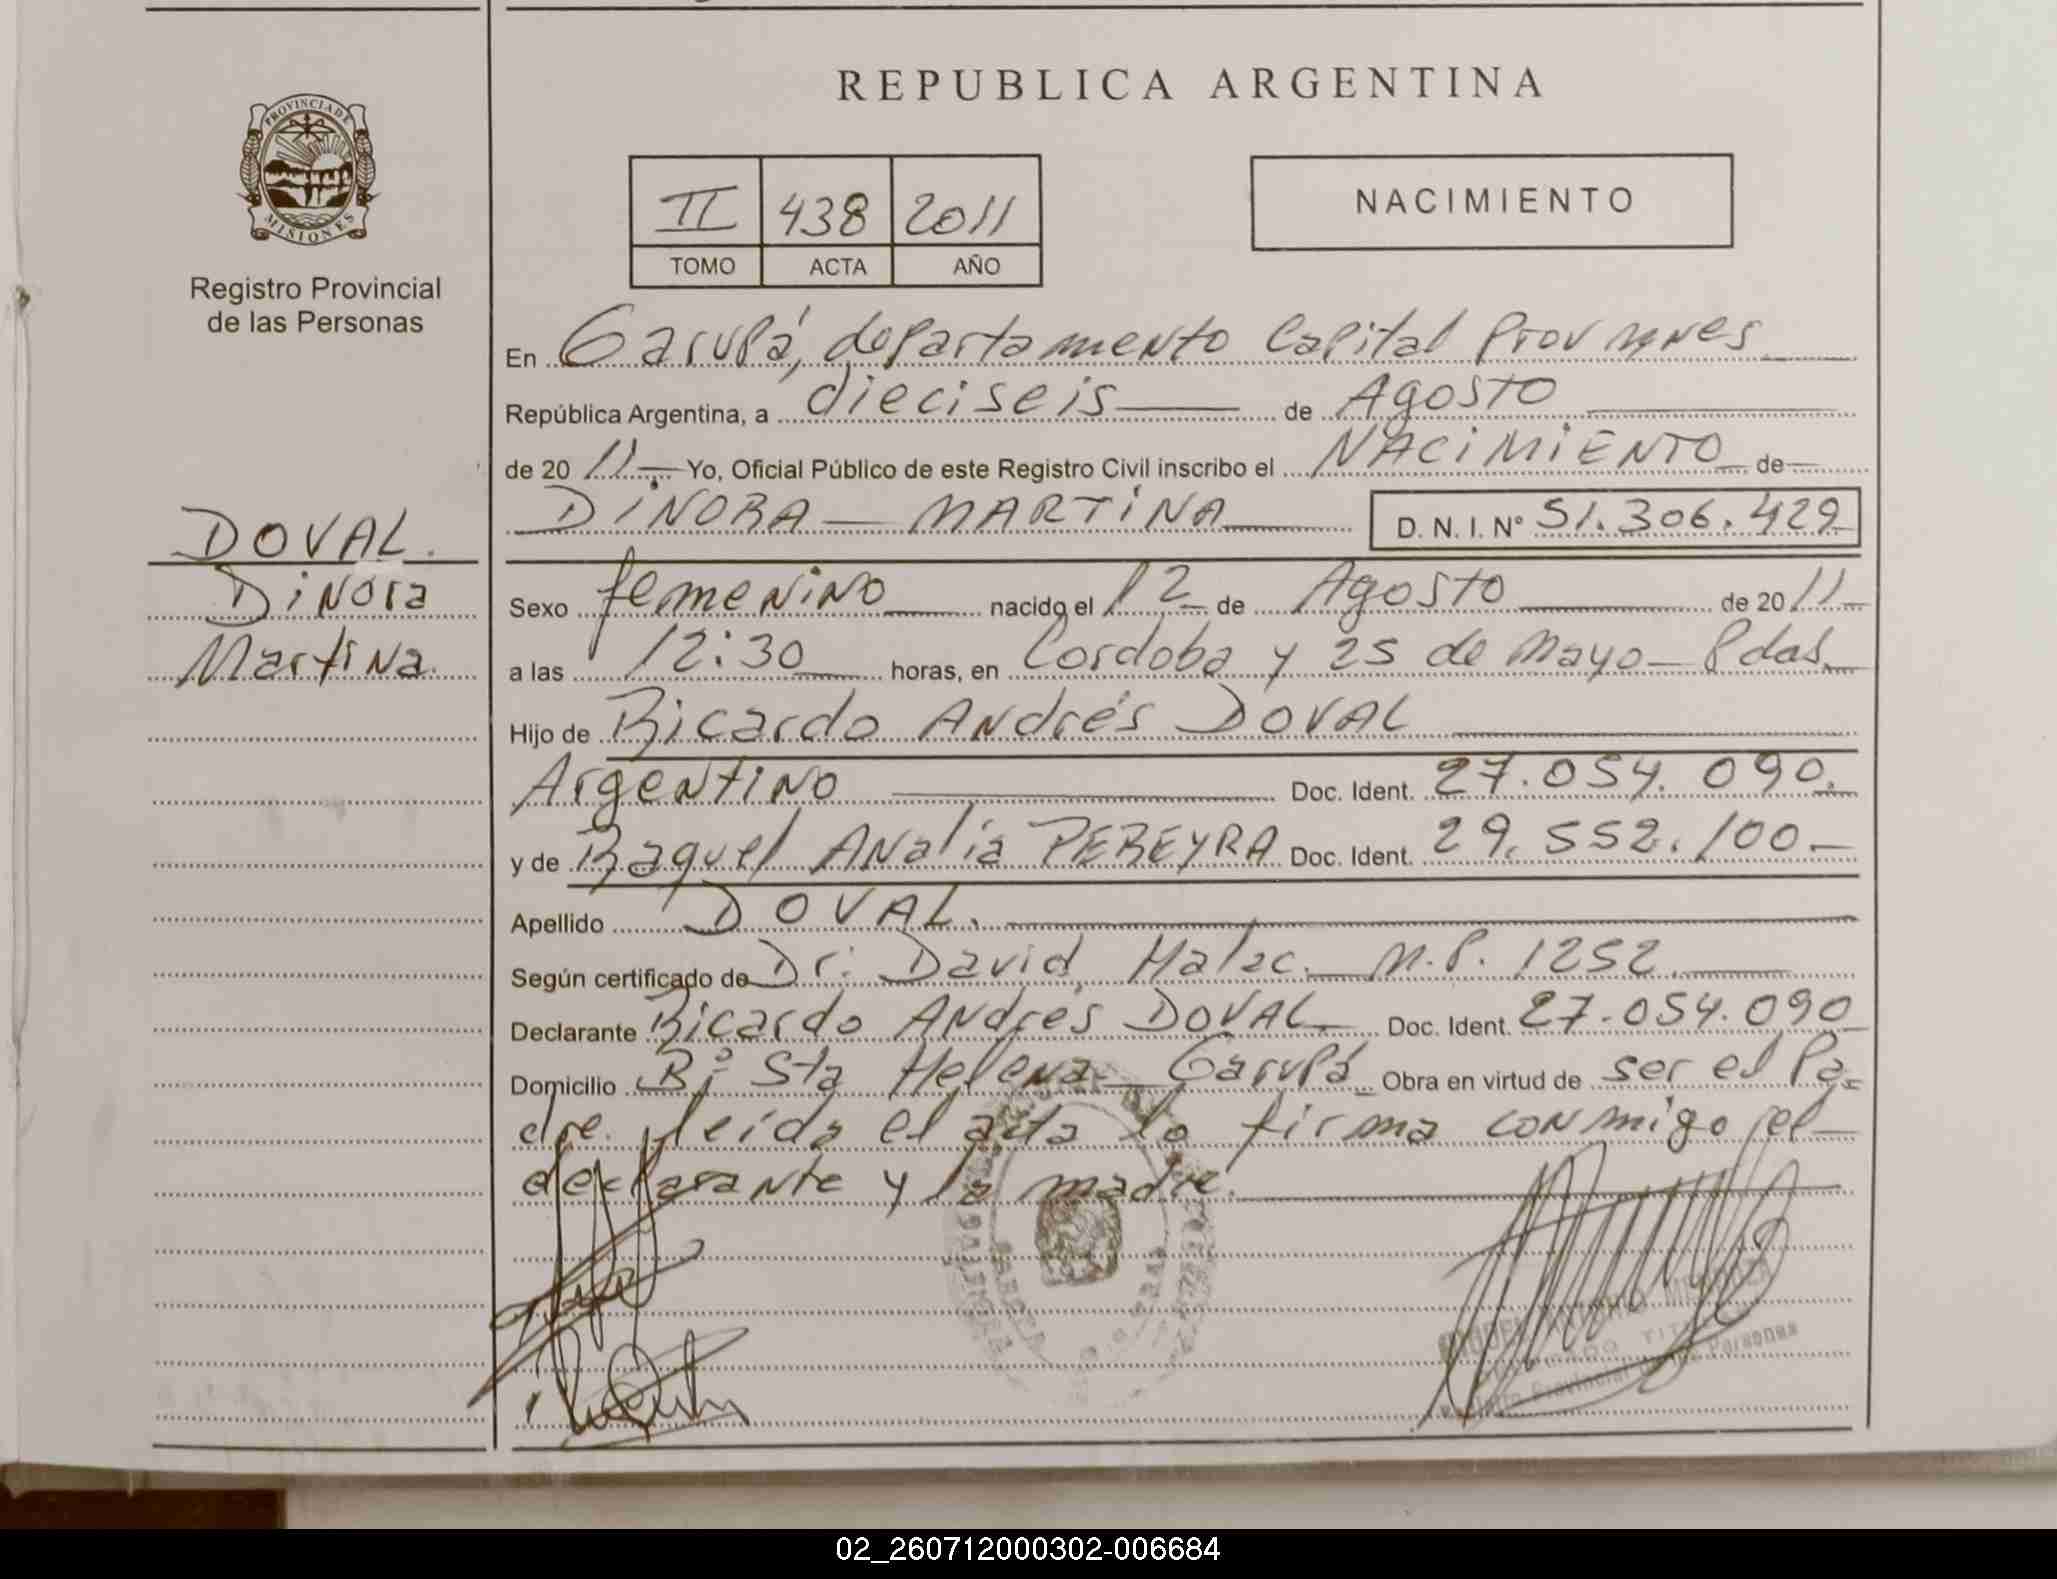 REPUBLICA ARGENTINA
PROVINCIA DE
MISIONES
Registro Provincial
de las Personas
II 438 2011
TOMO ACTA AÑO
NACIMIENTO
En Garupá, departamento Capital Prov mnes
República Argentina, a dieciseis de Agosto
de 2011 Yo, Oficial Público de este Registro Civil inscribo el NACIMIENTO de
DINORA MARTINA D. N. I. N° 51.306.429
DOVAL.
Dinora
Martina.
Sexo femenino nacido el 12 de Agosto de 2011
a las 12:30 horas, en Cordoba y 25 de Mayo - Pdas.
Hijo de Ricardo Andrés DOVAL
Argentino Doc. Ident. 27.054.090.
y de Raquel Analía PEREYRA Doc. Ident. 29.552.100.-
Apellido DOVAL.
Según certificado de Dr. David Malec. M.P. 1252
Declarante Ricardo Andrés DOVAL. Doc. Ident. 27.054.090
Domicilio Bº Sta Helena - Garupá Obra en virtud de ser el Pa-
dre. leída el acta lo firma conmigo el
declarante y la madre.
ANTONIO
TITULAR
Provincial de las Personas
02_260712000302-006684